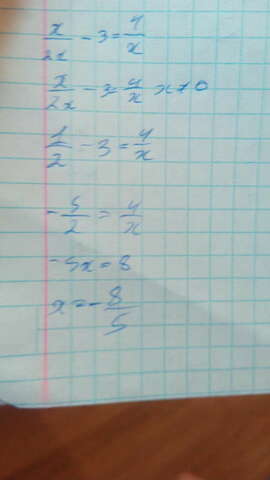 x/2x - 3 = 4/x
x/2x - 3 = 4/x x ≠ 0
1/2 - 3 = 4/x
-5/2 = 4/x
-5x = 8
x = -8/5